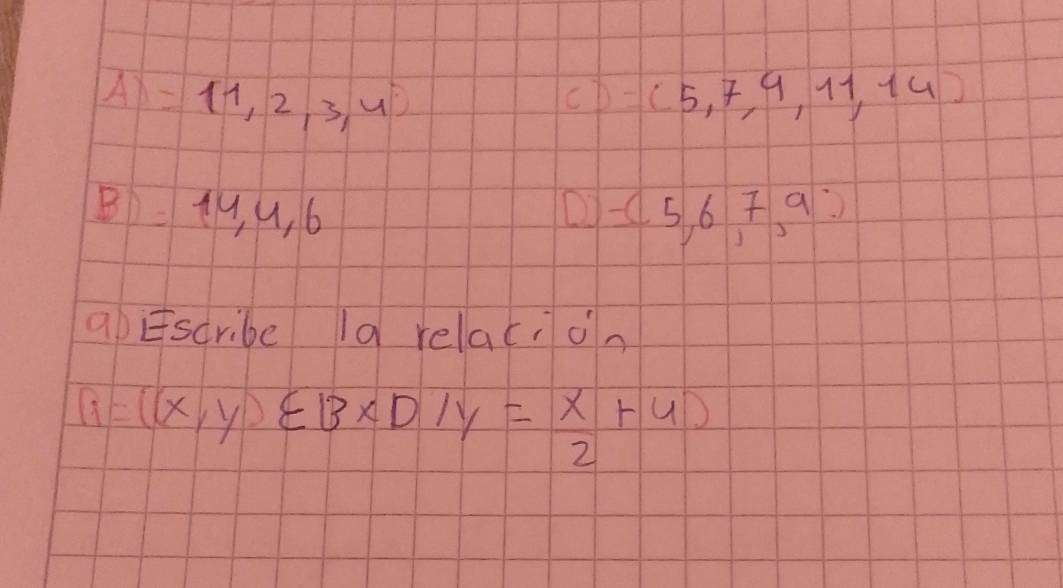 A) = {1, 2, 3, 4} C) = {5, 7, 9, 11, 14}
B) = {4, 4, 6 D) = {5, 6, 7, 9}
a) Escribe la relación
R = {(x, y) ∈ B x D / y = x/2 + 4}